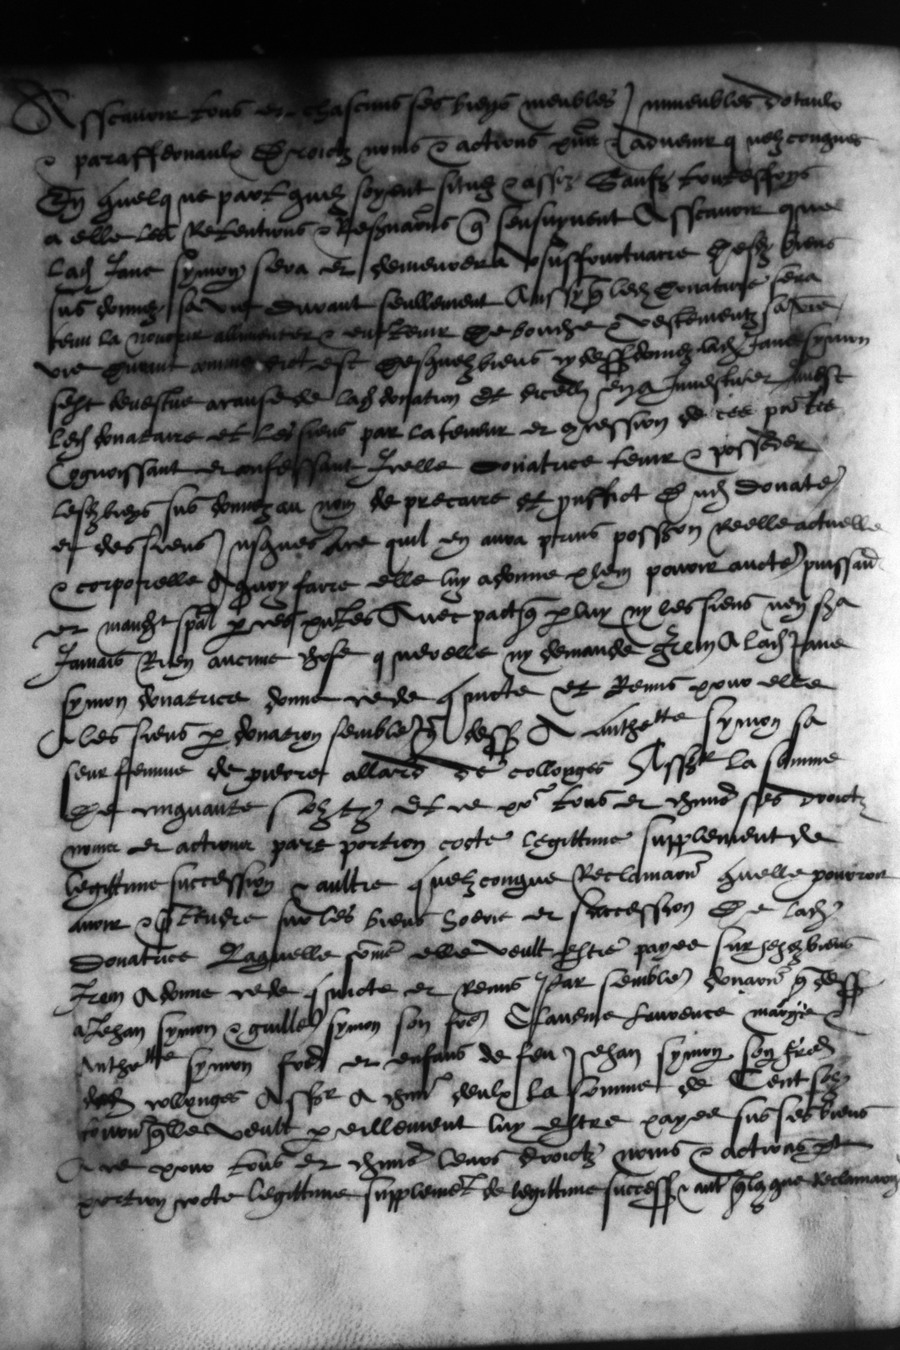 Asscavoir tous et chascuns ses biens meubles immeubles dotaulx
& paraffernaulx Droictz noms & actions pnt & advenir quelzconques
En quelque part quilz soyent situez & assis Saufz toutesfoys
a elle les Retentions & Reservations q sensuyvent Asscavoir que
lad Jane symon sera et demeurera Usuffructuaire desd biens
sus donnez sa vie durant seullement Aussy q led Donataire sera
tenu la nourrir alimenter & entretenir de bouche & vestementz sa vie
vie durant comme dict est desquelz biens cy dess donnez lad Jane symon
sest devestue a cause de lad donation et diceulx en a Investu
led donataire et les siens par la teneur et cession de ces pntes
Cognoissant et confessant Icelle donatrice tenir & posseder
lesd biens sus donnez au nom de precaire et proffict dud donate
et des siens jusques a ce quil en aura prins posson reelle actuelle
& corporelle A quoy faire elle luy a donne plein povoir aucte puissan
et mandt spal p ces pntes Avec pact q p luy ny les siens nen sera
Jamais Rien aucune chose querelle ny demande Item A lad Jane
symon donatrice donne cede quicte et Remis pour elle
& les siens p donation semble q dess A anthette symon sa
seur femme de pierre allard de collonges Asscr la somme
De cinquante solz tz et ce pr tous et chunes ses droictz
noms et actions part portion cocte legittime supplement de
legittime succession & aultre quelzconque Reclamaon quelle pouroit
avoir & ptendre sur les biens hoerie et succession De lad
donatrice Laquelle some elle veult estre payee sur sesd biens
Item A donne cede quicte et remis par semble donaon q dess
a Jehan symon & guille symon son fre Claudine Laurence margie &
Anthette symon fre et enfans de feu Jehan symon son frere
dud collonges Asscr A chun deulx la somme de Cent solz
tournois qlle veult pareillement luy estre payee sus ses biens
& ce pour tous et chunes leurs droictz noms & actions pt
portion cocte legittime supplemet de legittime success & ault qlzque Reclamaon